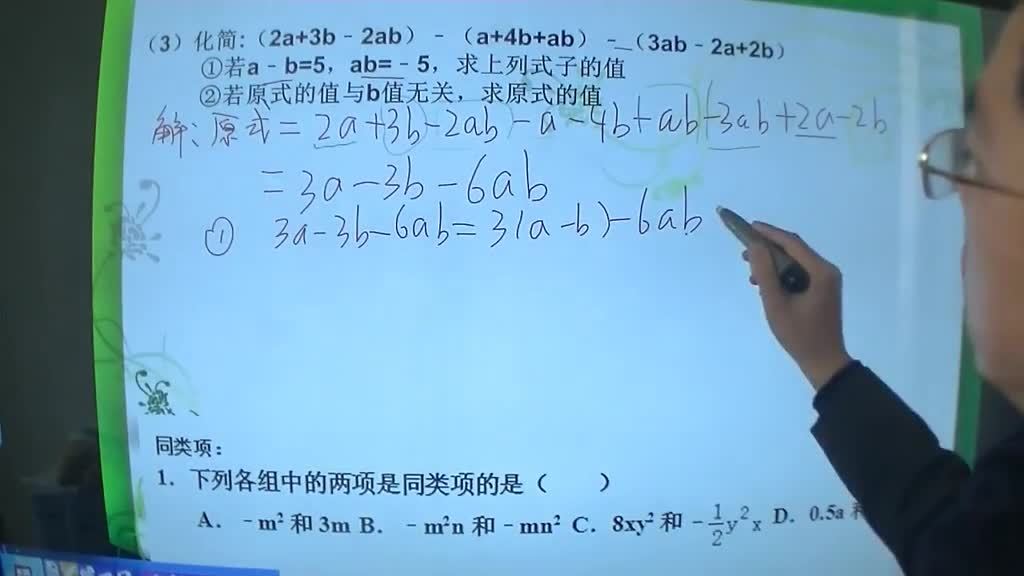 （3）化简:（2a+3b－2ab）－（a+4b+ab）－（3ab－2a+2b）
①若a－b=5，ab=－5，求上列式子的值
②若原式的值与b值无关，求原式的值
解：原式=2a+3b-2ab-a-4b+ab-3ab+2a-2b
=3a-3b-6ab
① 3a-3b-6ab=3(a-b)-6ab
同类项：
1．下列各组中的两项是同类项的是（ ）
A．－m² 和 3m B．－m²n 和－mn² C．8xy² 和 －1/2 y²x D．0.5a 和